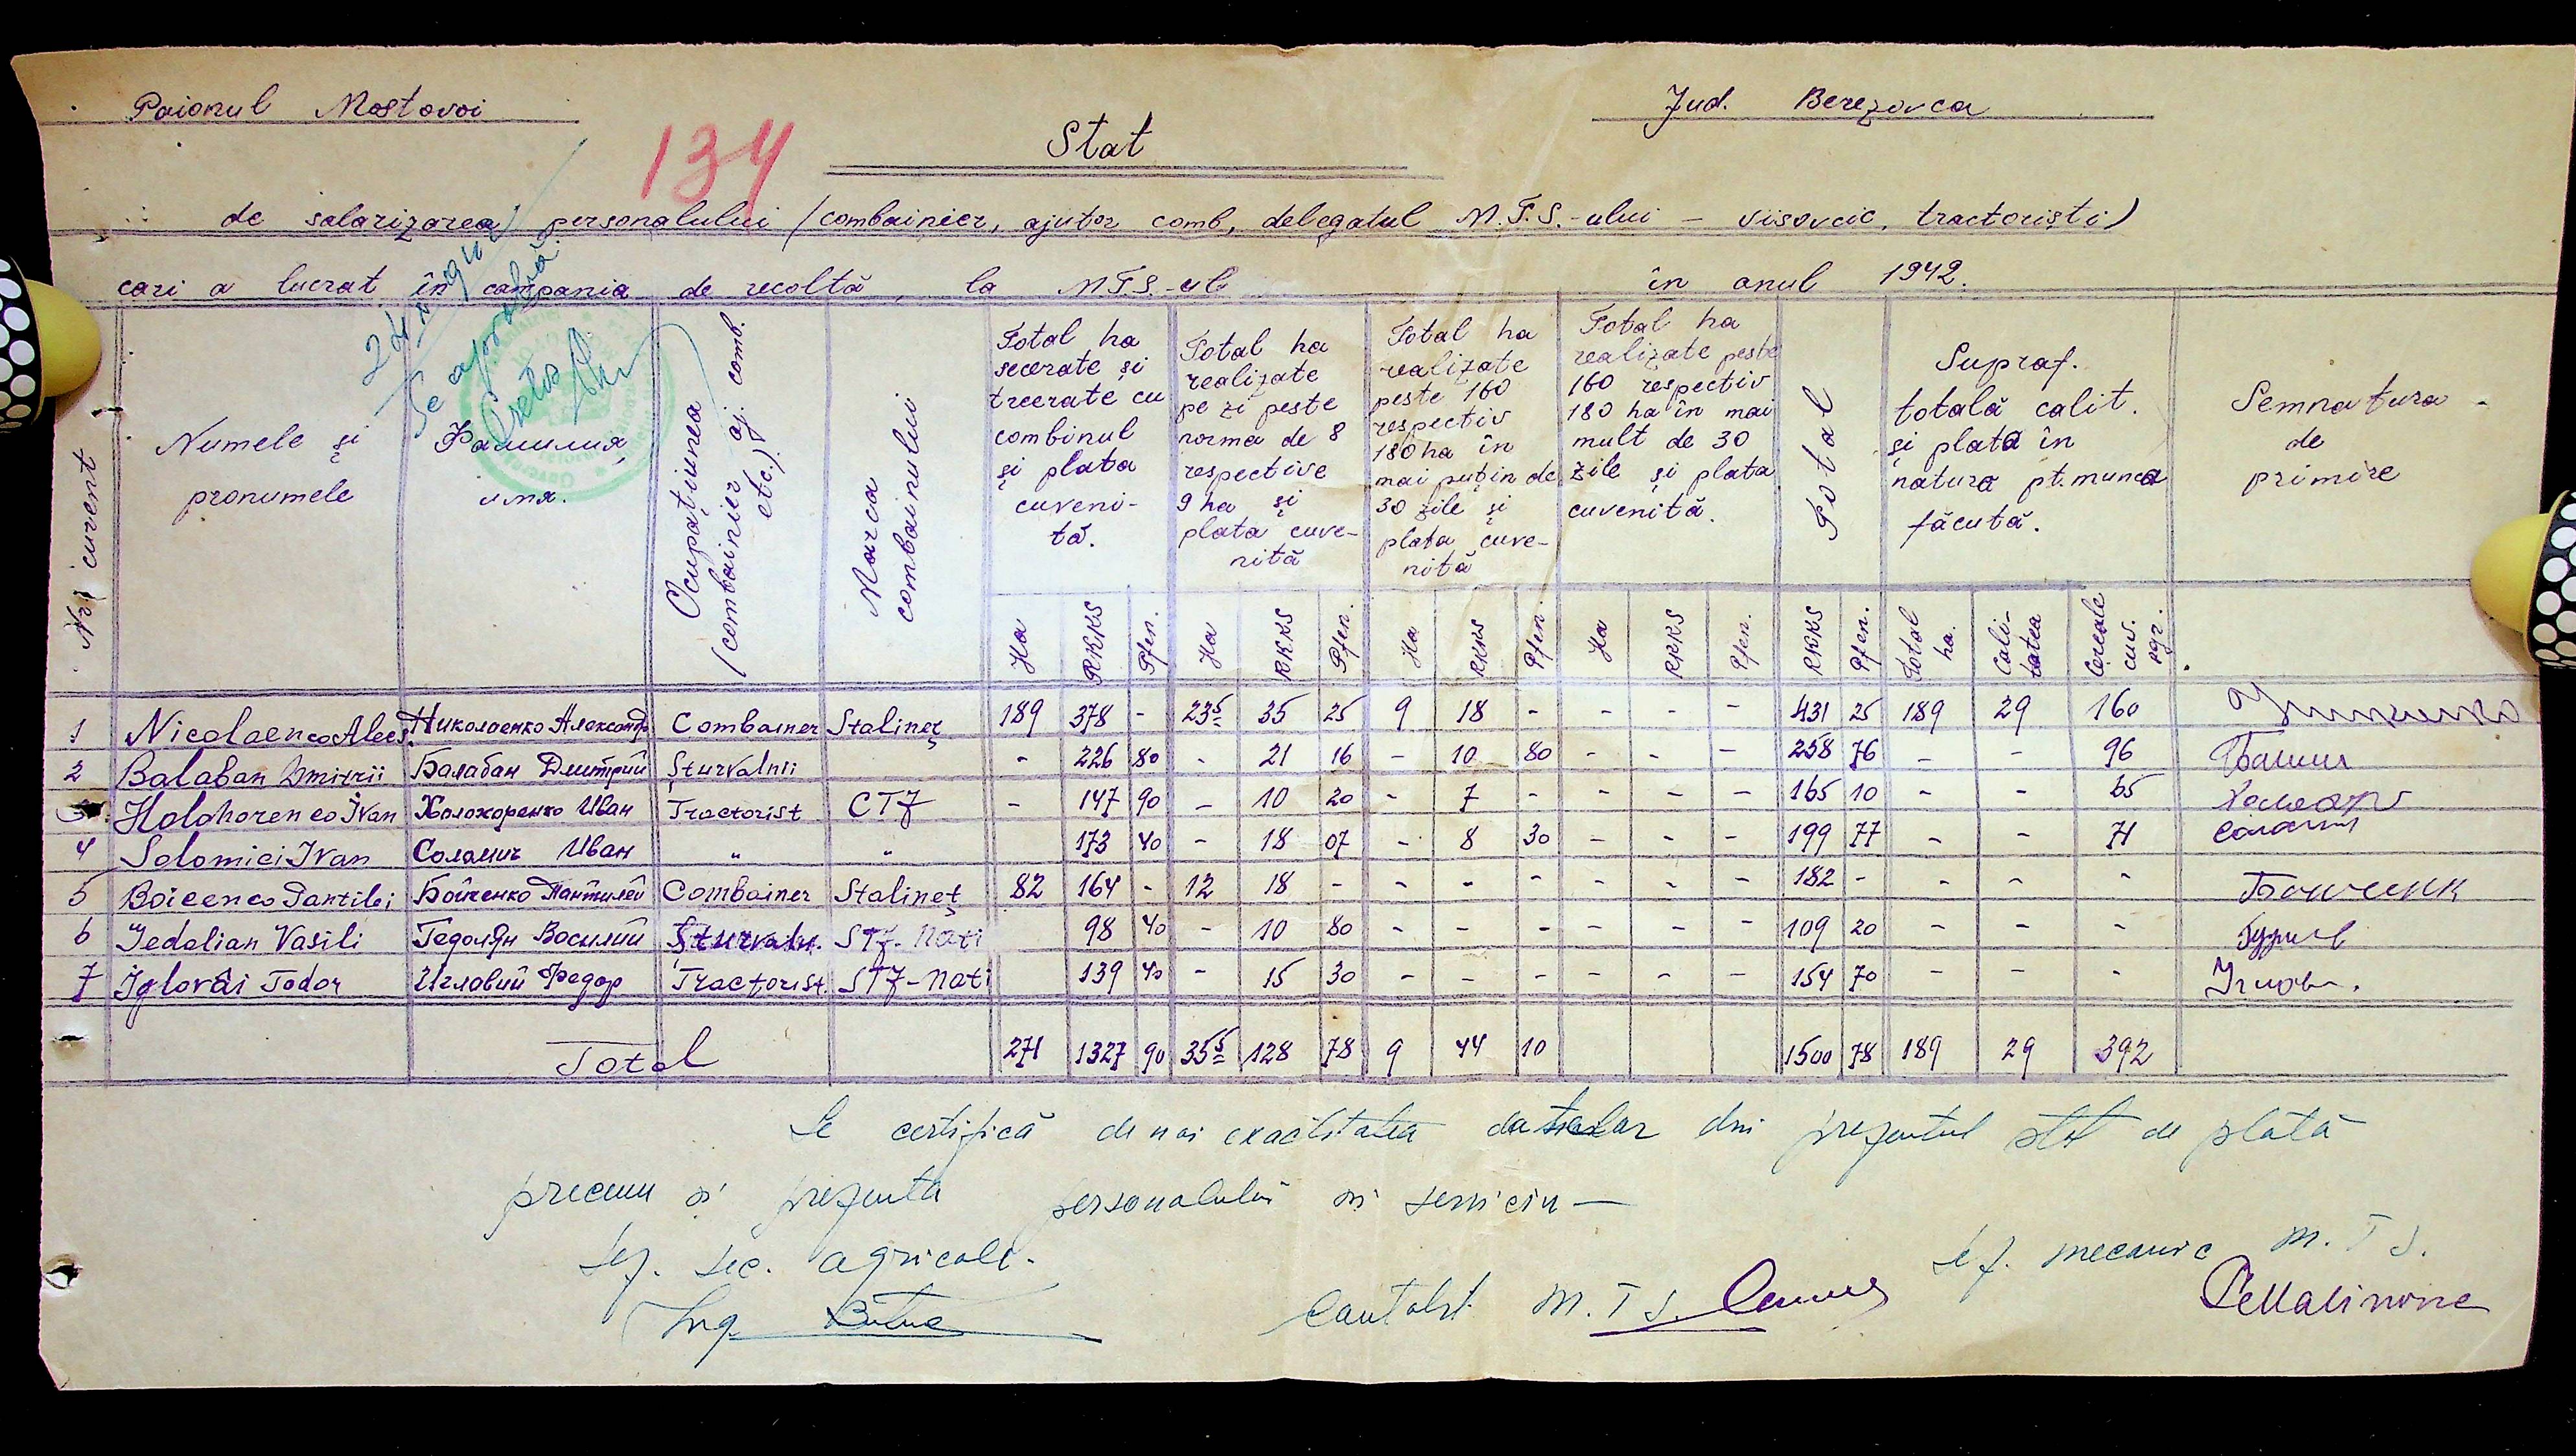 Raionul Mostovoi
Jud. Berezovca
134
Stat
de salarizarea personalului (combainier, ajutor comb, delegatul M.T.S.-ului – visovcic, tractoriști)
cari a lucrat în campania de recoltă, la MTS-ul în anul 1942.
Se aprobă
Pretor
Nr. curent
Numele și pronumele
Фамилия, имя.
Ocupațiunea (combainier aj. comb. etc.)
Marca combainului
Total ha secerate și treerate cu combinul și plata cuvenită.
Total ha realizate pe zi peste norma de 8 respective 9 ha și plata cuvenită
Total ha realizate peste 160 respectiv 180 ha în mai puțin de 30 zile și plata cuvenită
Total ha realizate peste 160 respectiv 180 ha în mai mult de 30 zile și plata cuvenită.
Total
Supraf. totală calit. și plata în natura pt. munca făcută.
Semnatura de primire
Ha RKKS Pfen. Ha RKKS Pfen. Ha RKKS Pfen. Ha RKKS Pfen. RKKS Pfen. Total ha. Cali-tatea Cereale cuv. kgr.
1 Nicolaenco Alecs. Николаенко Александр Combainer Stalineț 189 378 - 23⁵ 35 25 9 18 - - - - 431 25 189 29 160
2 Balaban Dmitrii Балабан Дмитрий Șturvalnii - 226 80 - 21 16 - 10 80 - - - 258 76 - - 96
3 Holohorenco Ivan Холохоренко Иван Tractorist СТZ - 147 90 - 10 20 - 7 - - - - 165 10 - - 65
4 Solomici Ivan Соламич Иван " " 173 40 - 18 07 - 8 30 - - - 199 77 - - 71
5 Boicenco Pantilei Бойченко Пантилей Combainer Stalineț 82 164 - 12 18 - - - - - - - 182 - - - -
6 Gedolian Vasili Гедолян Василий Șturvaln. STZ-Nati 98 40 - 10 80 - - - - - - 109 20 - - -
7 Iglovâi Todor Игловий Федор Tractorist. STZ-Nati 139 40 - 15 30 - - - - - - 154 70 - - -
Total 271 1327 90 35⁵ 128 78 9 44 10 1500 78 189 29 392
Se certifică de noi exactitatea datelor din prezentul stat de plată
precum și prezenta personalului în serviciu —
Șef. sec. agricole.
Șef. mecanic M.T.S.
Ing.
Contabil M.T.S.